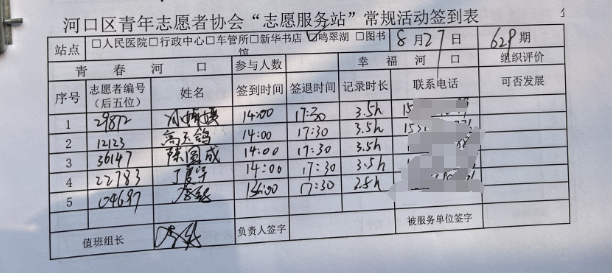 河口区青年志愿者协会“志愿服务站”常规活动签到表
站点 □人民医院□行政中心□车管所□新华书店☑鸣翠湖 □图书馆 8月27日 629期
青春河口 参与人数 幸福河口 组织评价
序号 志愿者编号（后五位） 姓名 签到时间 签退时间 记录时长 联系电话 可否发展
1 29872 14:00 17:30 3.5h
2 12123 14:00 17:30 3.5h
3 36147 14:00 17:30 3.5h
4 22783 14:00 17:30 3.5h
5 04697 17:30 2.5h
值班组长 负责人签字 被服务单位签字